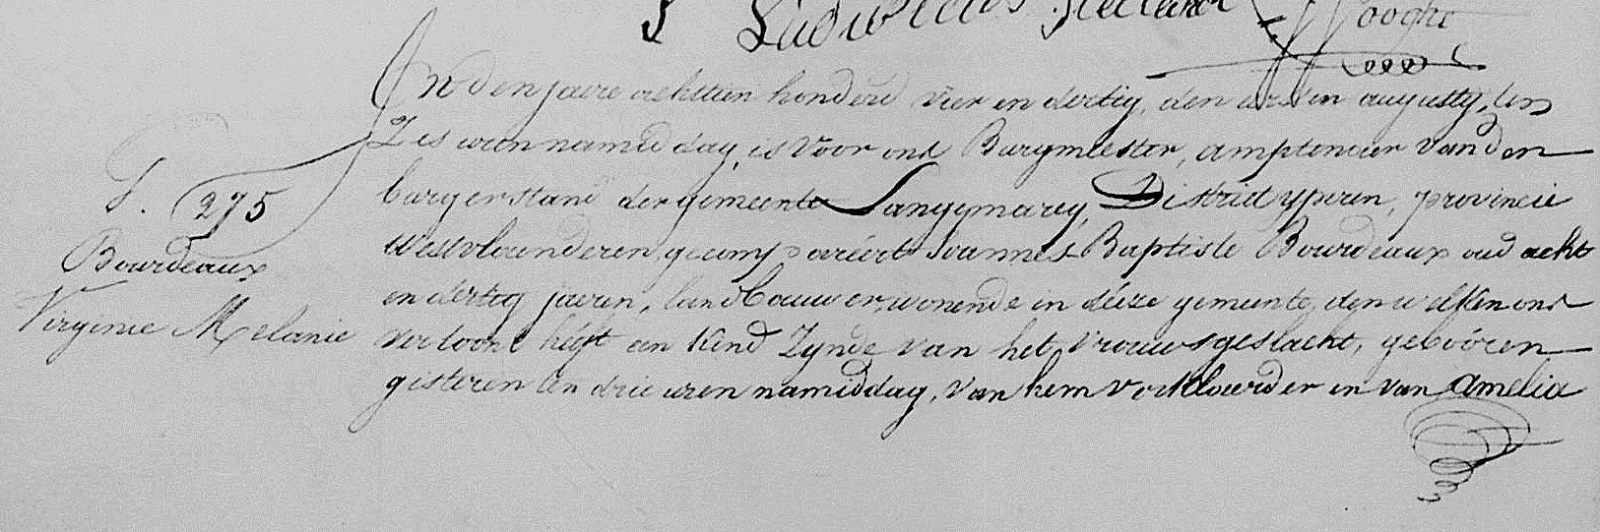 S Ludovicus
Hooghe
In den jaere achttien honderd vier en dertig, den eersten augusty, ten
Zes uren namiddag, is Voor ons Burgmeester, amptenaer van den
burgerstand der gemeente Langemarcq, District yperen, provincie
Westvlaenderen, gecompareert Joannes Baptiste Bourdeaux oud acht
en dertig jaeren, landbouwer, wonende in déze gemeente, den welken ons
vertoont heéft een kind Zynde van het vrouwsgeslacht, gebóren
gisteren ten drie uren namiddag, van hem verklaerder en van amelia
S. 275
Bourdeaux
Virginie Melanie